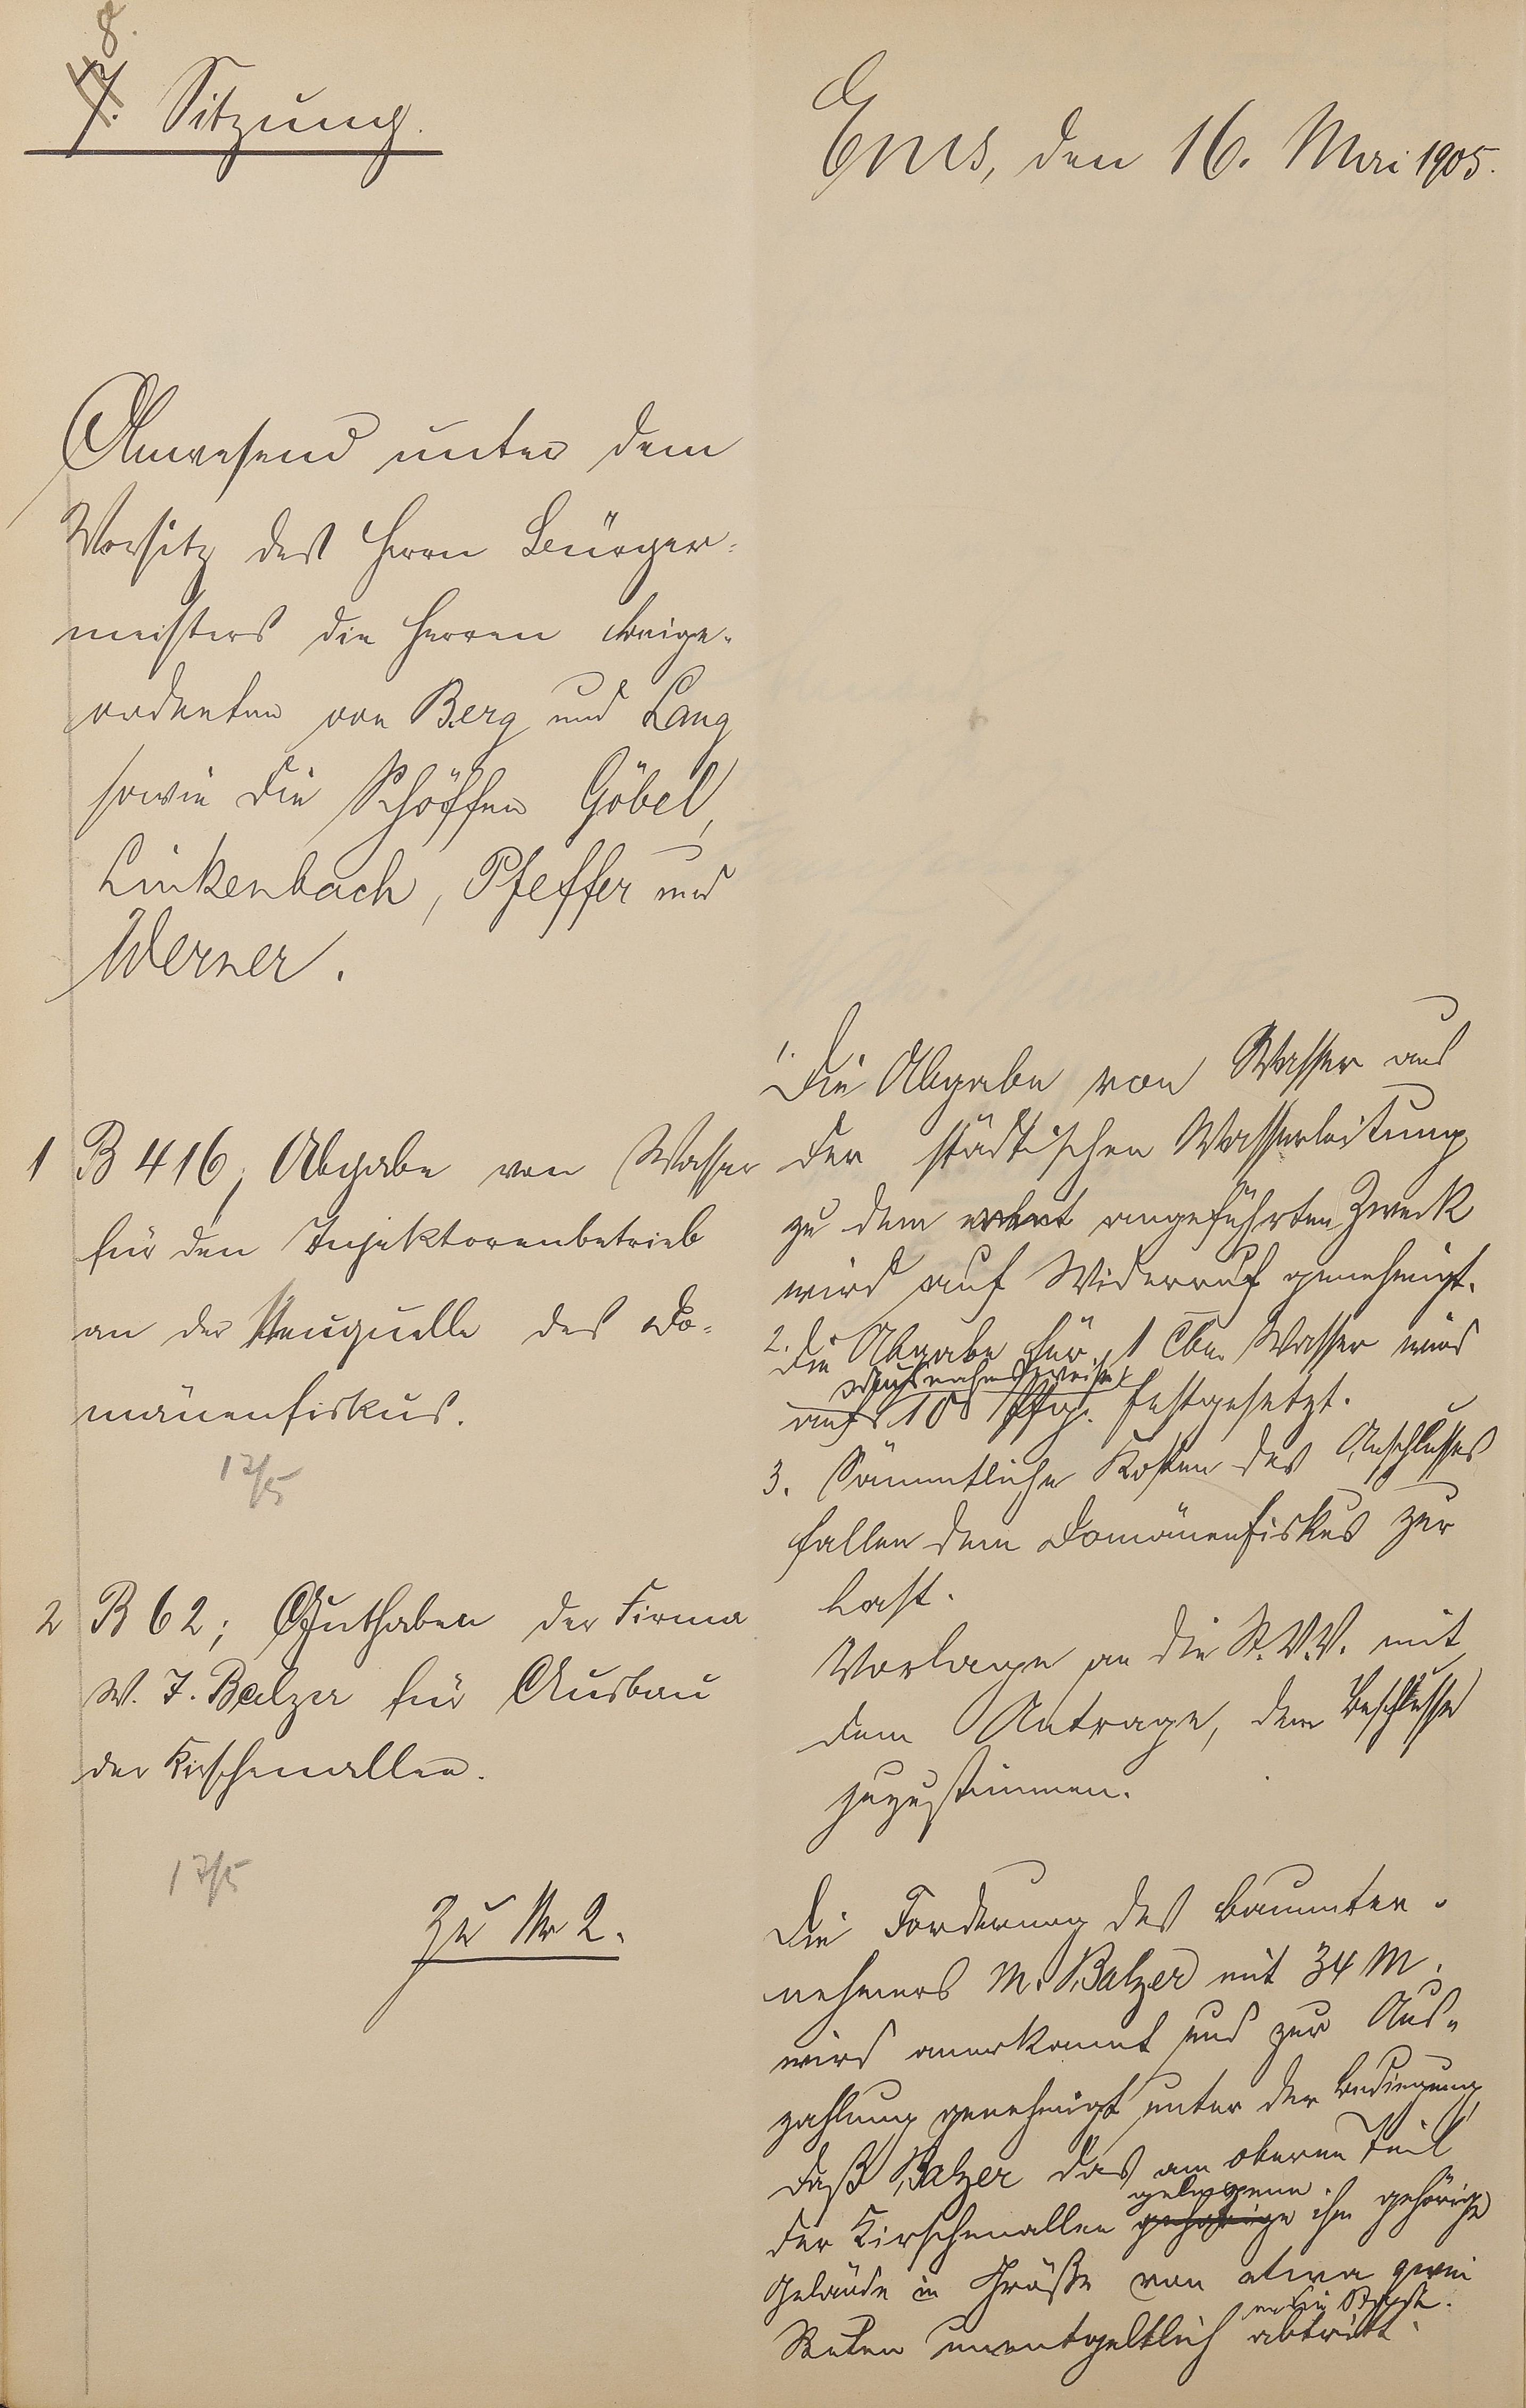 8.
7. Sitzung.
Ems, den 16. Mai 1905.
Anwesend unter dem
Vorsitz des Herrn Bürger-
meisters die Herren Beige-
ordneten von Berg und Lang
sowie die Schöffen Göbel,
Linkenbach, Pfeffer und
Werner.
1 B 416, Abgabe von Wasser
für den Injektorenbetrieb
an der Neuquelle des Do-
mänenfiskus.
17/5
2 B 62; Guthaben der Firma
W. J. Balzer für Ausbau
der Kirschenallee.
17/5
Zu Nr 2.
1. Die Abgabe von Wasser aus
der städtischen Wasserleitung
zu dem angeführten Zweck
wird auf Widerruf genehmigt.
2. Die Abgabe für 1 Cbm Wasser wird
ausnahmsweise
auf 10 Pfg. festgesetzt.
3. Sämmtliche Kosten des Anschlusses
fallen dem Domänenfiskus zur
Last.
Vorlage an die St.V.V. mit
dem Antrage, dem Beschlusse
zuzustimmen.
Die Forderung des Bauunter-
nehmers M. Balzer mit 34 M.
wird anerkannt und zur Aus-
zahlung genehmigt unter der Bedingung,
daß Balzer das am oberen Teil
gelegene
der Kirschenallee gehörige ihm gehörige
Gelände in Größe von etwa zwei
an die Stadt
Ruten unentgeltlich abtritt.